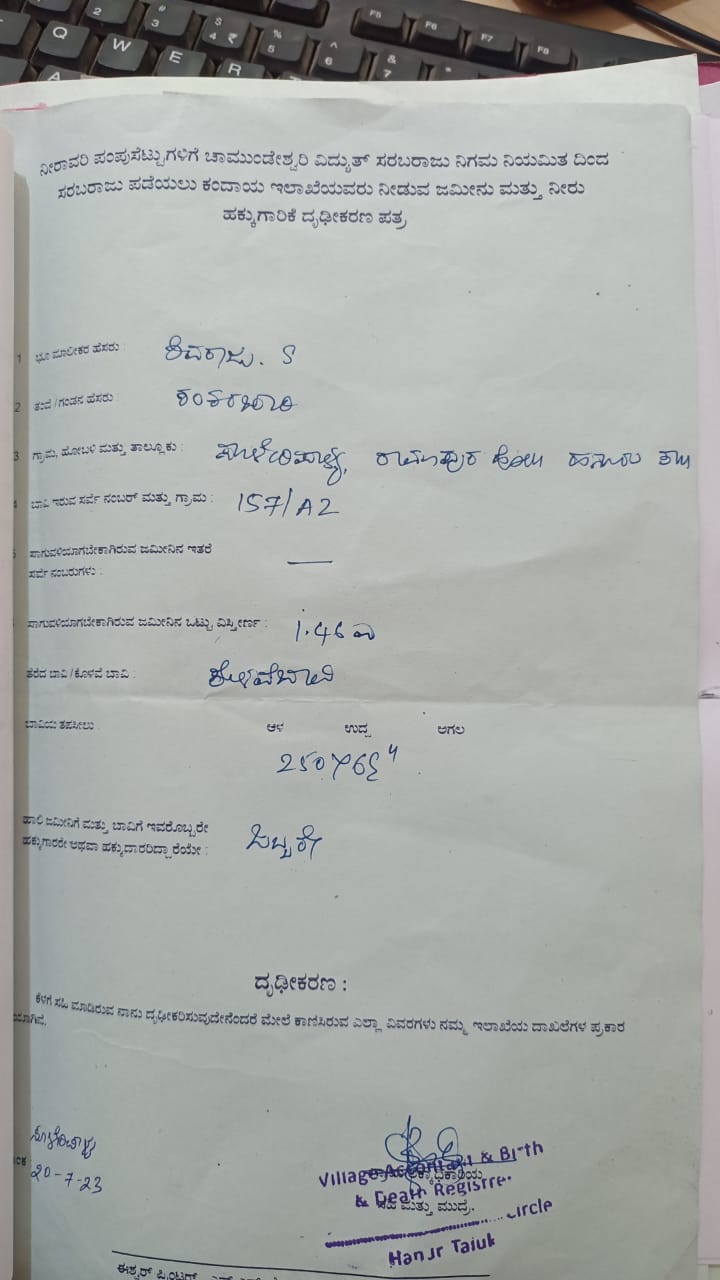 Q W E R
2 3 4 5 6 7
# $ ₹ % ^ & *
F5 F6 F7 F8
A
ನೀರಾವರಿ ಪಂಪುಸೆಟ್ಟುಗಳಿಗೆ ಚಾಮುಂಡೇಶ್ವರಿ ವಿದ್ಯುತ್ ಸರಬರಾಜು ನಿಗಮ ನಿಯಮಿತ ದಿಂದ
ಸರಬರಾಜು ಪಡೆಯಲು ಕಂದಾಯ ಇಲಾಖೆಯವರು ನೀಡುವ ಜಮೀನು ಮತ್ತು ನೀರು
ಹಕ್ಕುಗಾರಿಕೆ ದೃಢೀಕರಣ ಪತ್ರ
1 ಭೂ ಮಾಲೀಕರ ಹೆಸರು : ಶಿವರಾಜು. S
2 ತಂದೆ/ಗಂಡನ ಹೆಸರು :
3 ಗ್ರಾಮ, ಹೋಬಳಿ ಮತ್ತು ತಾಲ್ಲೂಕು : ರಾಮಾಪುರ ಹೋಬಳಿ ಹನೂರು ತಾ||
4 ಬಾವಿ ಇರುವ ಸರ್ವೆ ನಂಬರ್ ಮತ್ತು ಗ್ರಾಮ : 157/A2
ಸಾಗುವಳಿಯಾಗಬೇಕಾಗಿರುವ ಜಮೀನಿನ ಇತರೆ
ಸರ್ವೆ ನಂಬರುಗಳು : —
ಸಾಗುವಳಿಯಾಗಬೇಕಾಗಿರುವ ಜಮೀನಿನ ಒಟ್ಟು ವಿಸ್ತೀರ್ಣ : 1.46 ಎ
ತೆರೆದ ಬಾವಿ/ಕೊಳವೆ ಬಾವಿ : ಕೊಳವೆಬಾವಿ
ಬಾವಿಯ ತಪಸೀಲು : ಆಳ ಉದ್ದ ಅಗಲ
ಹಾಲಿ ಜಮೀನಿಗೆ ಮತ್ತು ಬಾವಿಗೆ ಇವರೊಬ್ಬರೇ
ಹಕ್ಕುಗಾರರೇ ಅಥವಾ ಹಕ್ಕುದಾರರಿದ್ದಾರೆಯೇ : ಒಬ್ಬರೇ
ದೃಢೀಕರಣ :
ಕೆಳಗೆ ಸಹಿ ಮಾಡಿರುವ ನಾನು ದೃಢೀಕರಿಸುವುದೇನೆಂದರೆ ಮೇಲೆ ಕಾಣಿಸಿರುವ ಎಲ್ಲಾ ವಿವರಗಳು ನಮ್ಮ ಇಲಾಖೆಯ ದಾಖಲೆಗಳ ಪ್ರಕಾರ
20-7-23
Village Accountant & Birth
& Death Registrar
ಸಹಿ ಮತ್ತು ಮುದ್ರೆ.
Circle
Hanur Taluk
ಈಶ್ವರ್ ಪ್ರಿಂಟರ್ಸ್